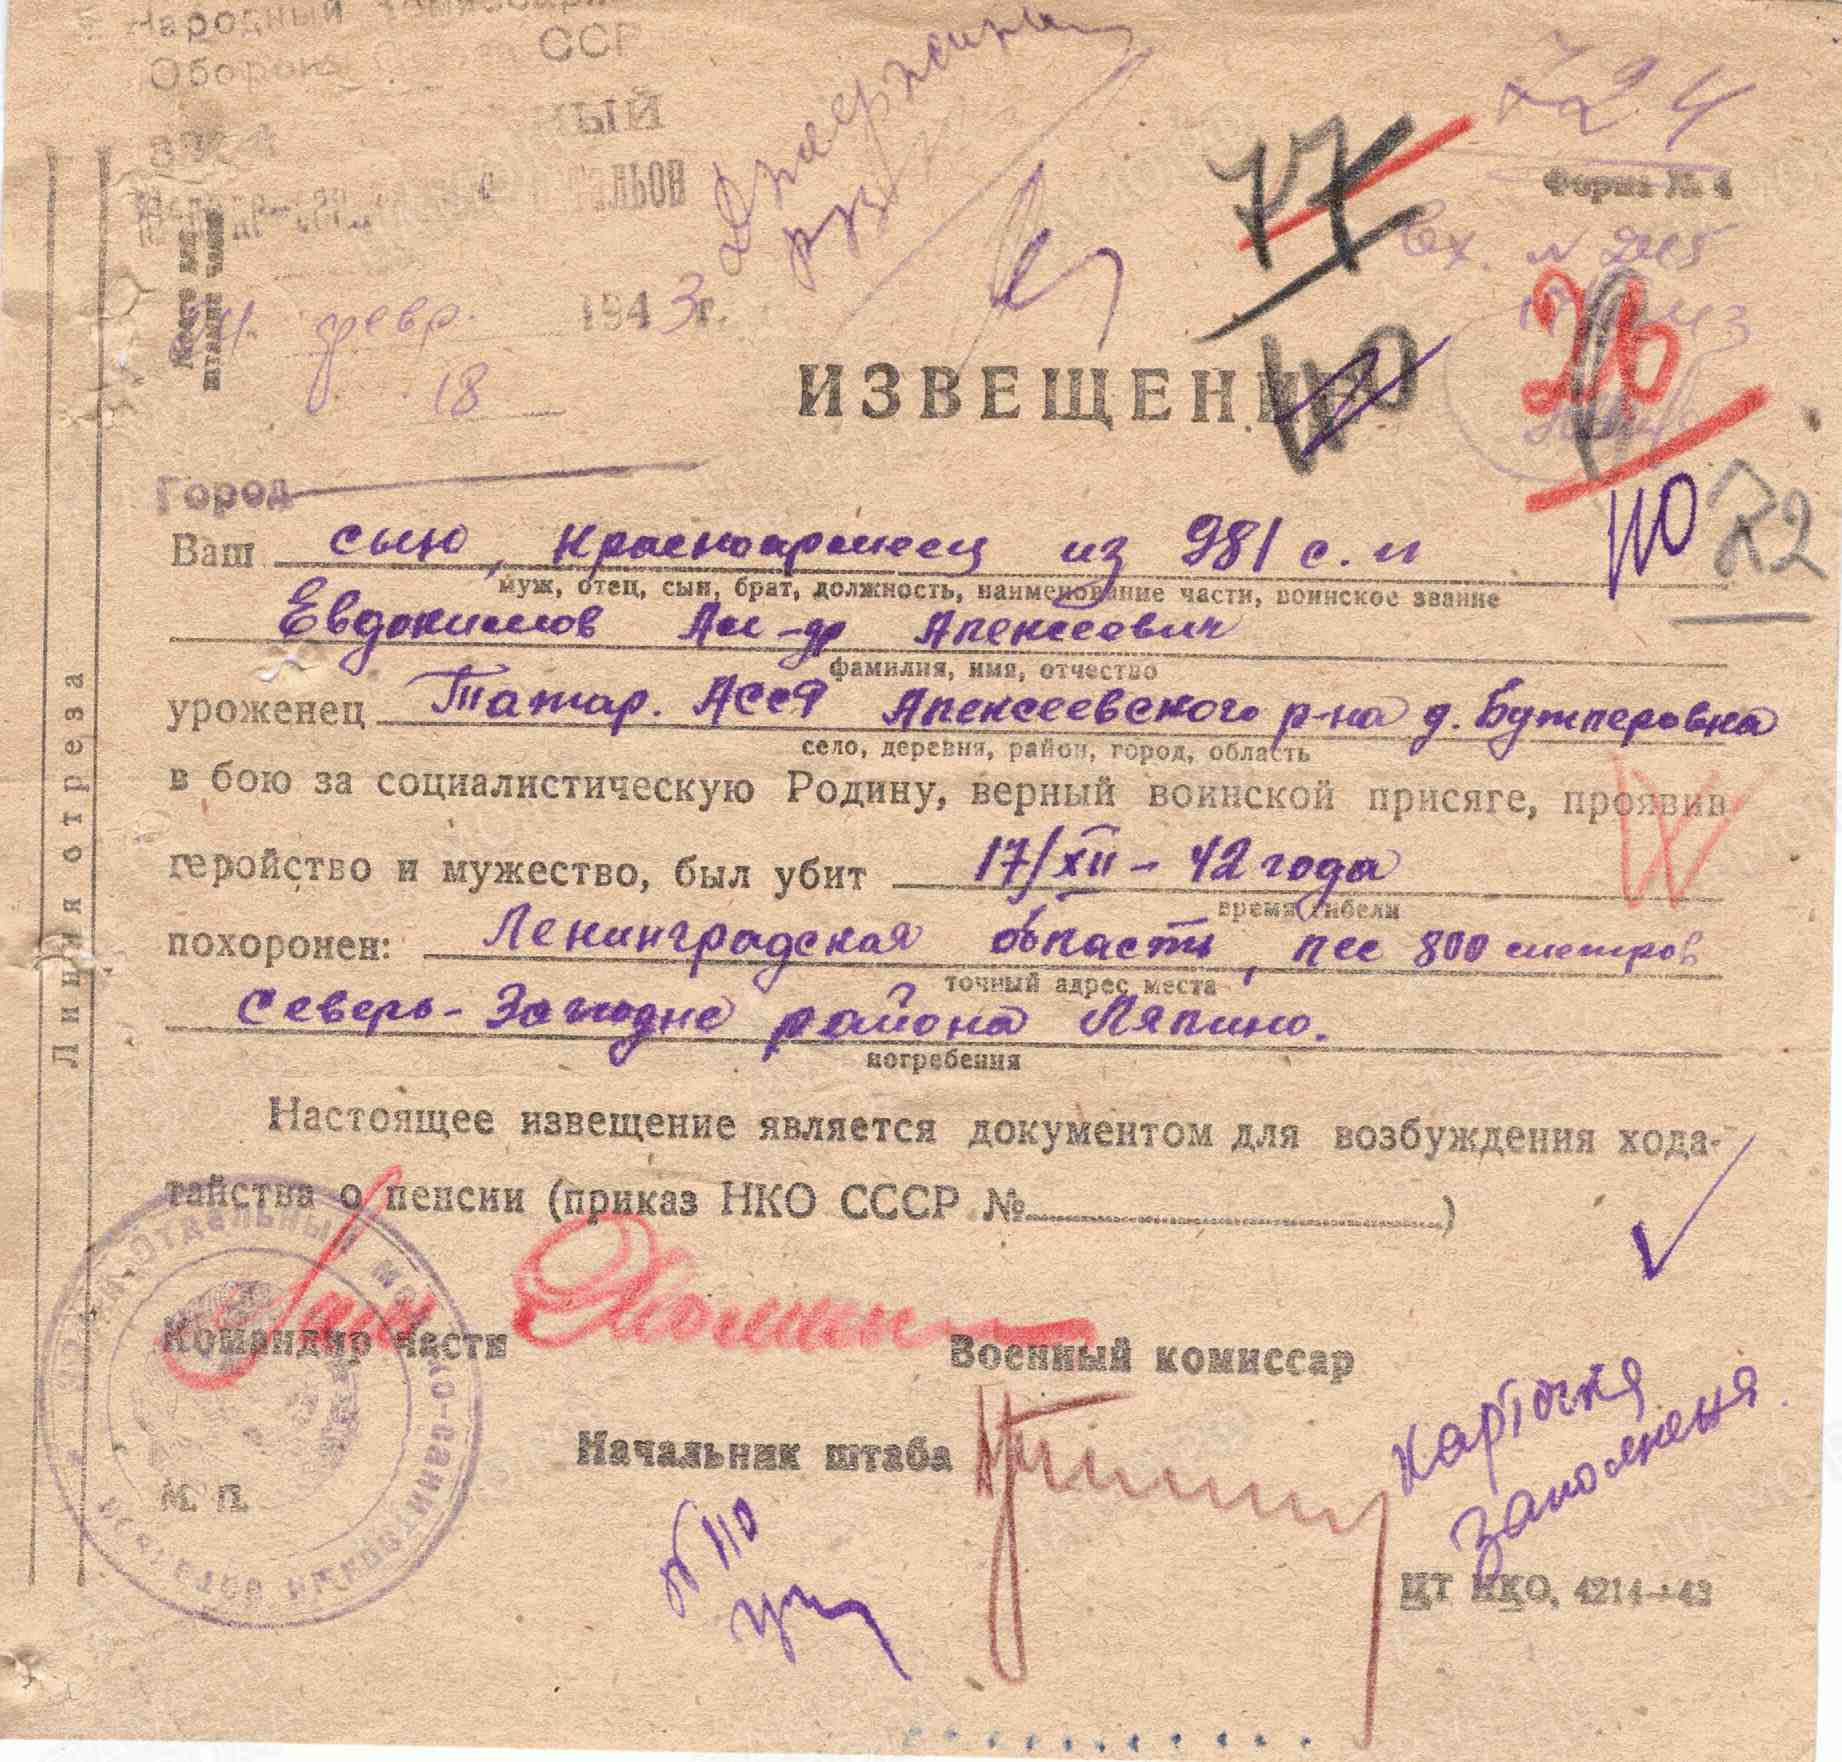 Народный Комиссариат
Обороны СССР
724
Форма № 4
77
Вх. №
Место для
штампа части
февр. 1943 г.
18
26
ИЗВЕЩЕНИЕ
110
Город
110
R2
Ваш сын, красноармеец из 981 с. п
муж, отец, сын, брат, должность, наименование части, воинское звание
Евдокимов Ал-др Алексеевич
фамилия, имя, отчество
уроженец Татар. АССР Алексеевского р-на д.
село, деревня, район, город, область
в бою за социалистическую Родину, верный воинской присяге, проявив
геройство и мужество, был убит 17/XII - 42 года
время гибели
похоронен: Ленинградская область, лес 800 метров
точный адрес места
Северо-Западне района Ляпино.
погребения
Линия отреза
Настоящее извещение является документом для возбуждения хода-
тайства о пенсии (приказ НКО СССР № )
Командир части
Военный комиссар
Начальник штаба
М. П.
№ 110
карточка
заполнена.
ЦТ НКО. 4214—43